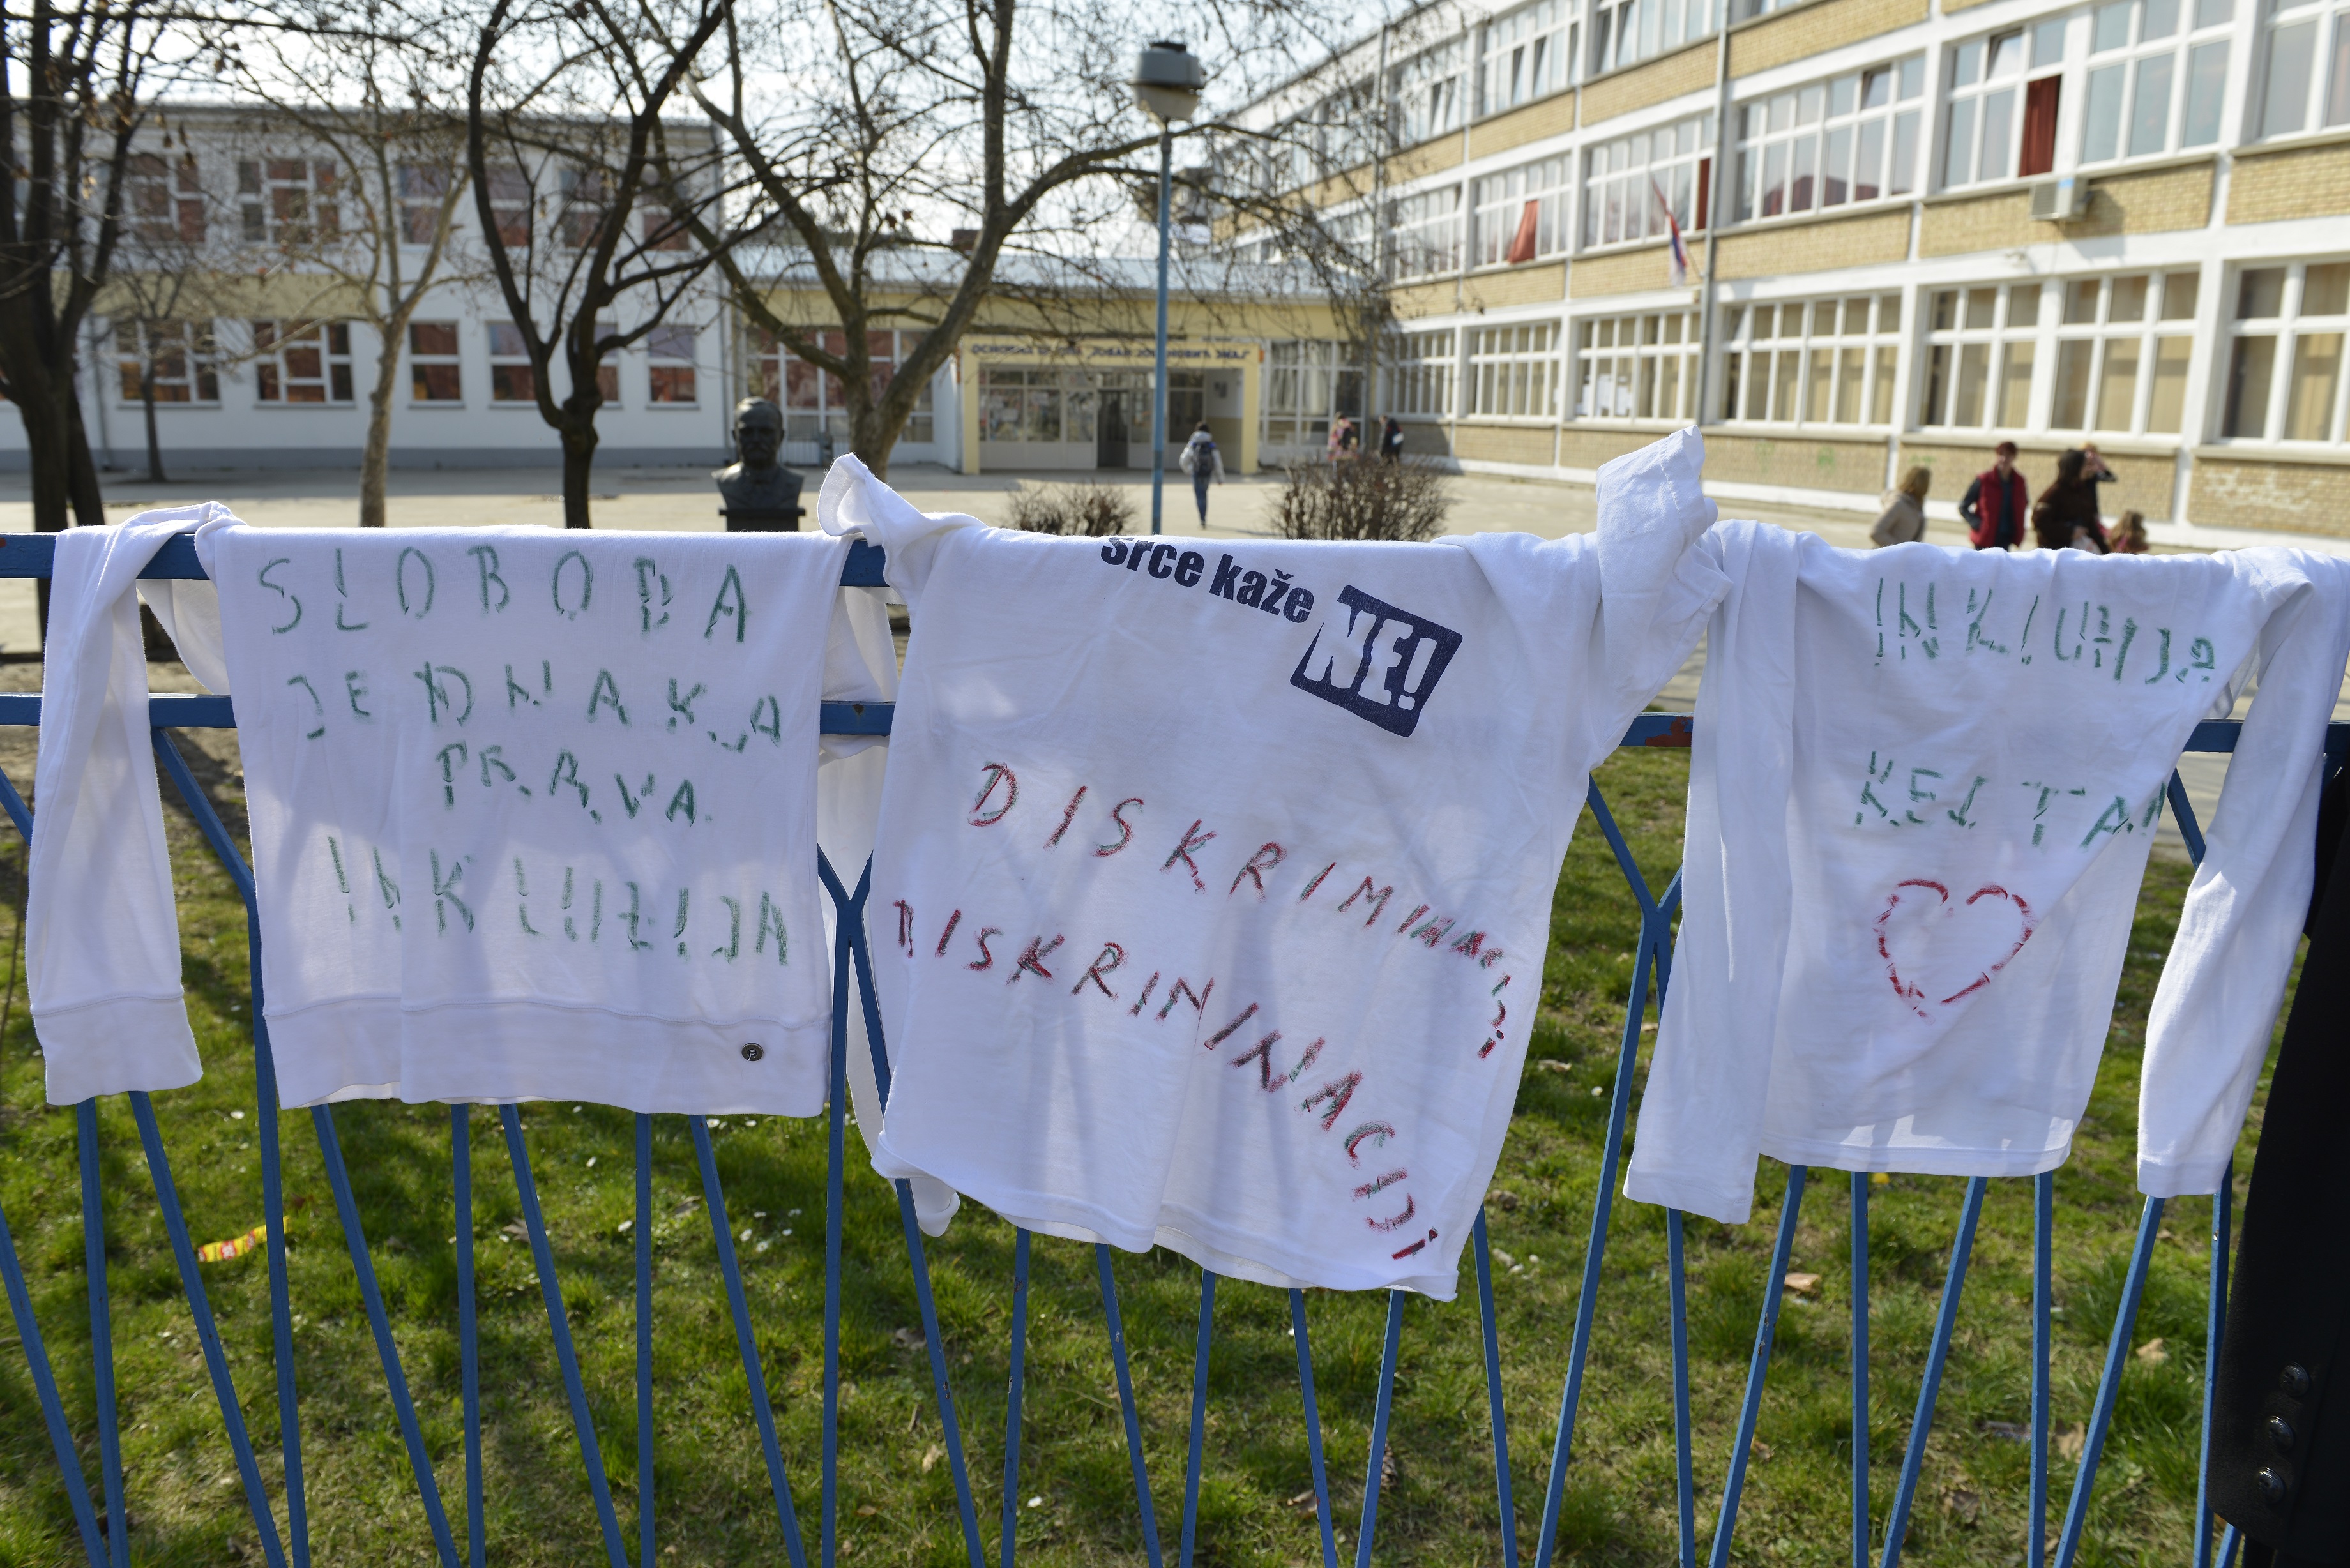 ОСНОВНА ШКОЛА "ЈОВАН ЈОВАНОВИЋ ЗМАЈ"
SLOBODA
JEDNAKA
PRAVA
INKLUZIJA
srce kaže
NE!
DISKRIMINACIJI
DISKRIMINACIJI